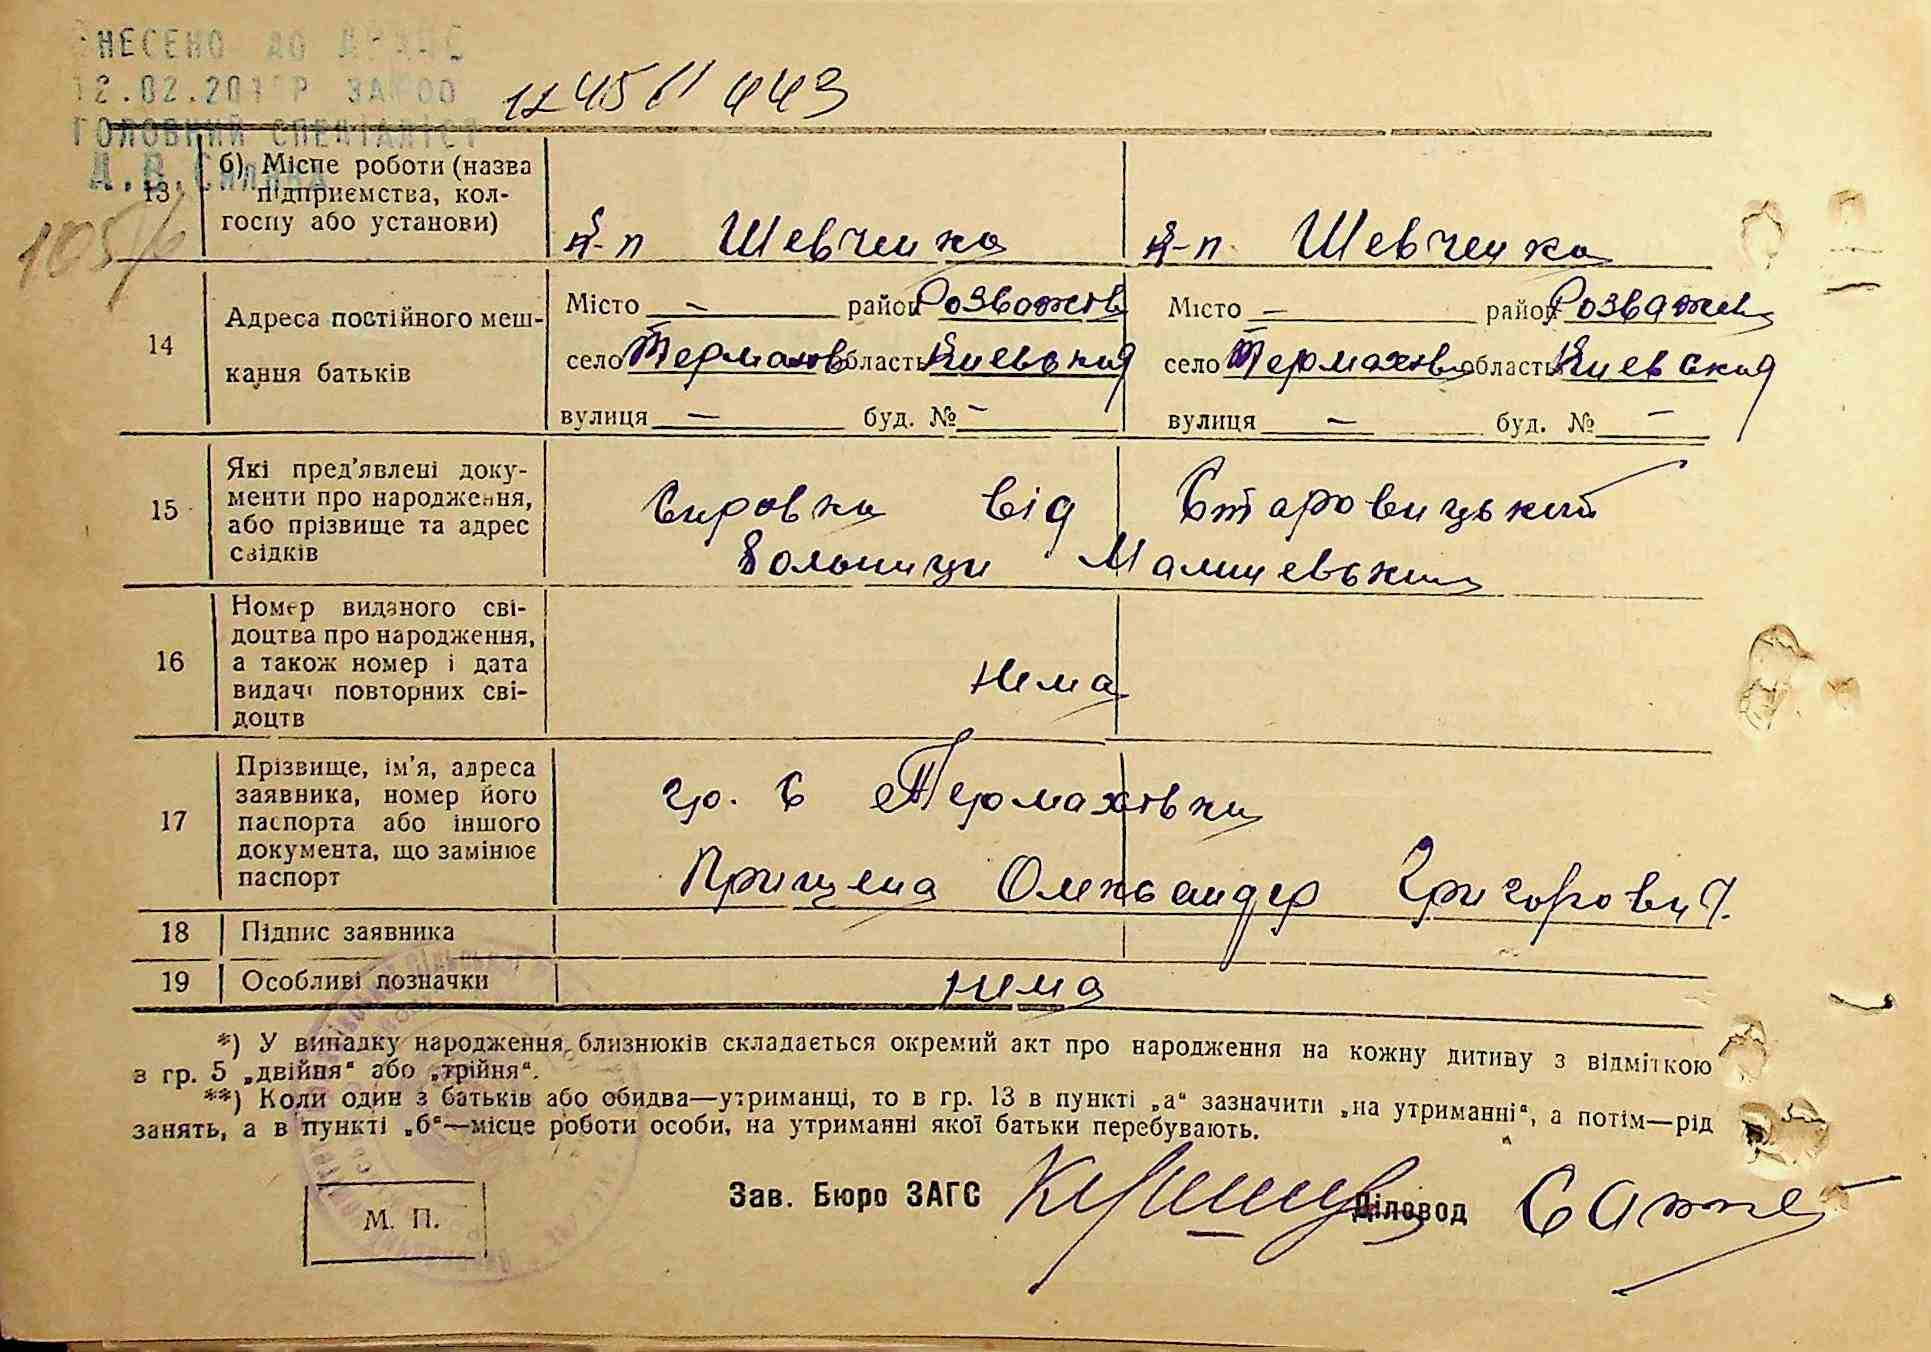 ВНЕСЕНО ДО ДРАЦС
12.02.201 Р ЗА 00
ГОЛОВНИЙ СПЕЦІАЛІСТ
105/6
13 б) Місце роботи (назва
підприємства, кол-
госпу або установи)
к-п Шевченка к-п Шевченка
14 Адреса постійного меш-
кання батьків
Місто — район Розважів Місто — район Розважев
село Термахів область Киевская село Термахів область Киевская
вулиця — буд. № — вулиця — буд. № —
15 Які пред'явлені доку-
менти про народження,
або прізвище та адрес
свідків
Справка від Старовицький
больници Малиневський
16 Номер виданого сві-
доцтва про народження,
а також номер і дата
видачі повторних сві-
доцтв
Нима
17 Прізвище, ім'я, адреса
заявника, номер його
паспорта або іншого
документа, що замінює
паспорт
гр. с Термахівки
Прищепа Олександер Григорович
18 Підпис заявника
19 Особливі позначки
нима
*) У випадку народження близнюків складається окремий акт про народження на кожну дитину з відміткою
в гр. 5 „двійня" або „трійня".
**) Коли один з батьків або обидва—утриманці, то в гр. 13 в пункті „а" зазначити „на утриманні", а потім—рід
занять, а в пункті „б"—місце роботи особи, на утриманні якої батьки перебувають.
Зав. Бюро ЗАГС Діловод
М. П.